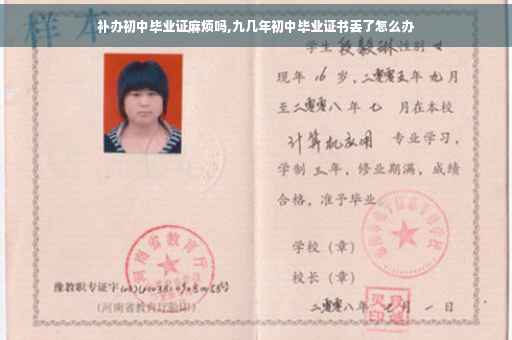 补办初中毕业证麻烦吗,九几年初中毕业证书丢了怎么办
样本
学生段毅琳性别女
现年16岁,二零零五年九月
至二零零八年七月在本校
计算机应用 专业学习,
学制三年,修业期满,成绩
合格,准予毕业。
学校(章)
校长(章)
二零零八年七月一日
河南省教育厅
豫教职专证字
(河南省教育厅验印)